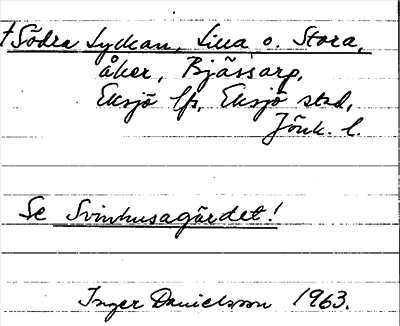 †Södra Lyckan, Lilla o. Stora,
åker, Bjässarp,
Eksjö lfs, Eksjö stad,
Jönk. l.
Se Svinhusagärdet!
Inger Danielsson 1963.